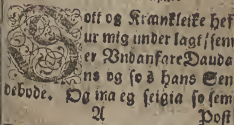 Sott og Krankleike hef
ur mig under lagt/sem
er Vndanfare Dauda
ns og so s hans Sen
debode. Og ma eg seigia so sem
A Post